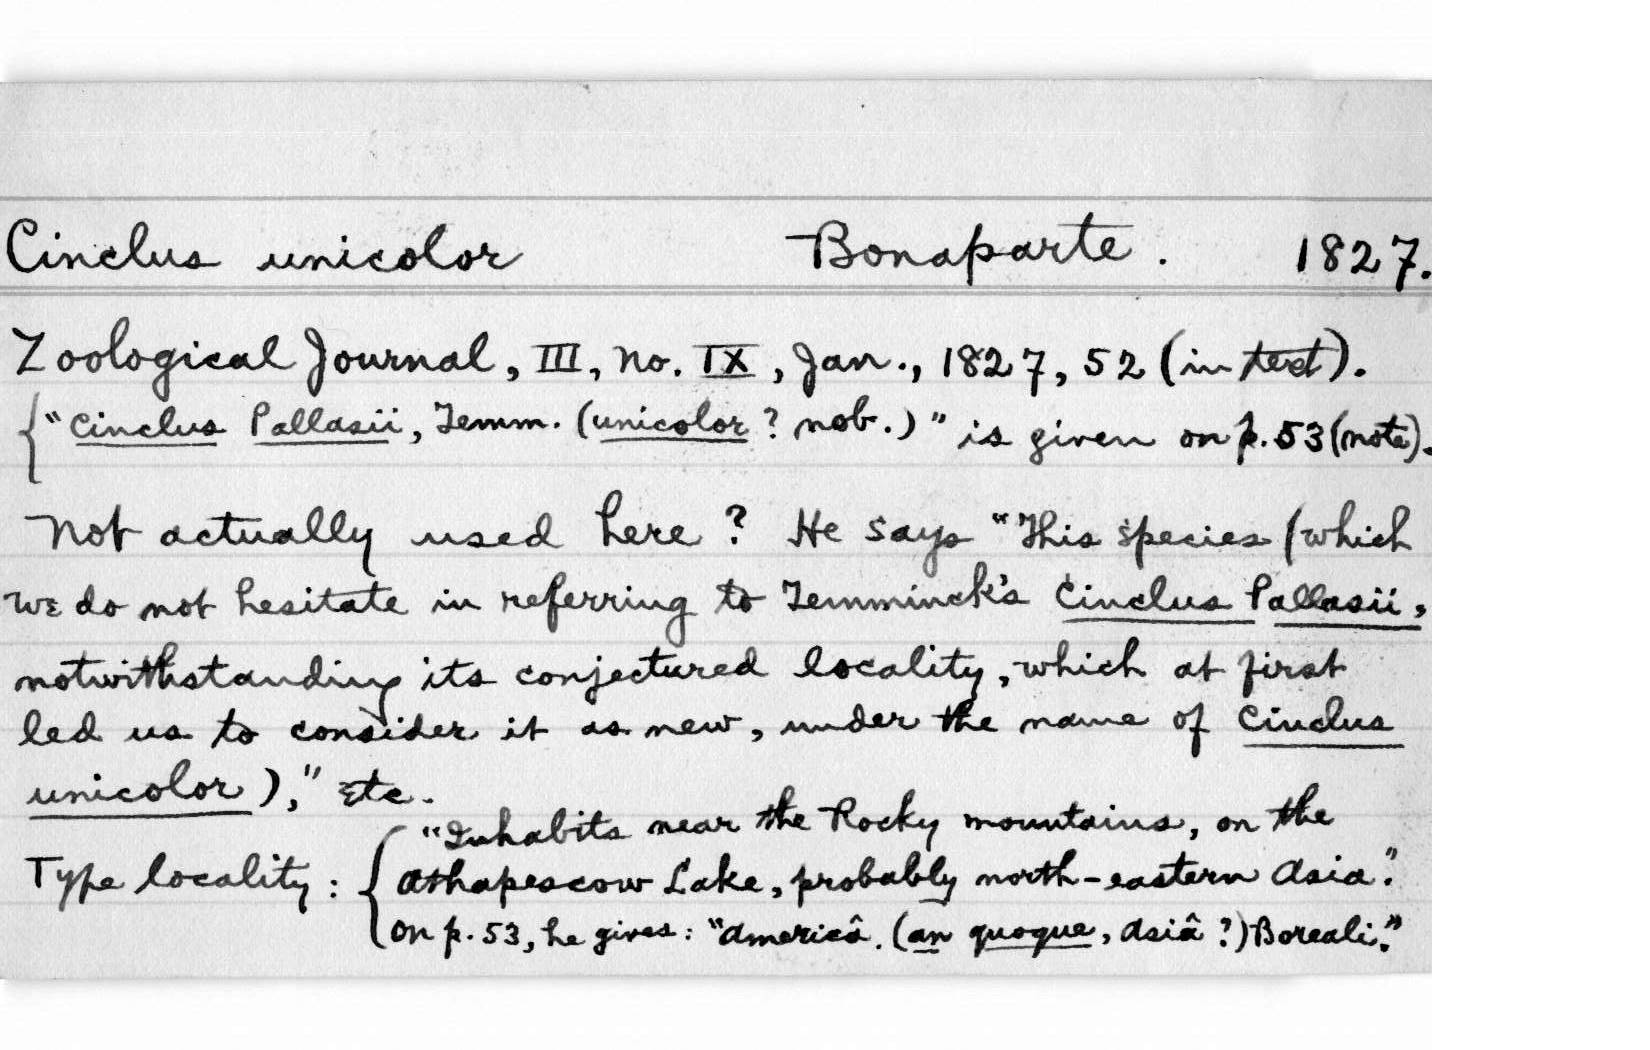 Cinclus unicolor Bonaparte. 1827.
Zoological Journal, III, No. IX, Jan., 1827, 52 (in text).
{"Cinclus Pallasii, Temm. (unicolor? nob.)" is given on p. 53 (note).
Not actually used here? He says "This species (which
we do not hesitate in referring to Temminck's Cinclus Pallasii,
notwithstanding its conjectured locality, which at first
led us to consider it as new, under the name of Cinclus
unicolor)," etc.
Type locality: { "Inhabits near the Rocky mountains, on the
Athapescow Lake, probably north-eastern Asia."
On p. 53, he gives: "Americâ. (an quoque, Asiâ?) Boreali."